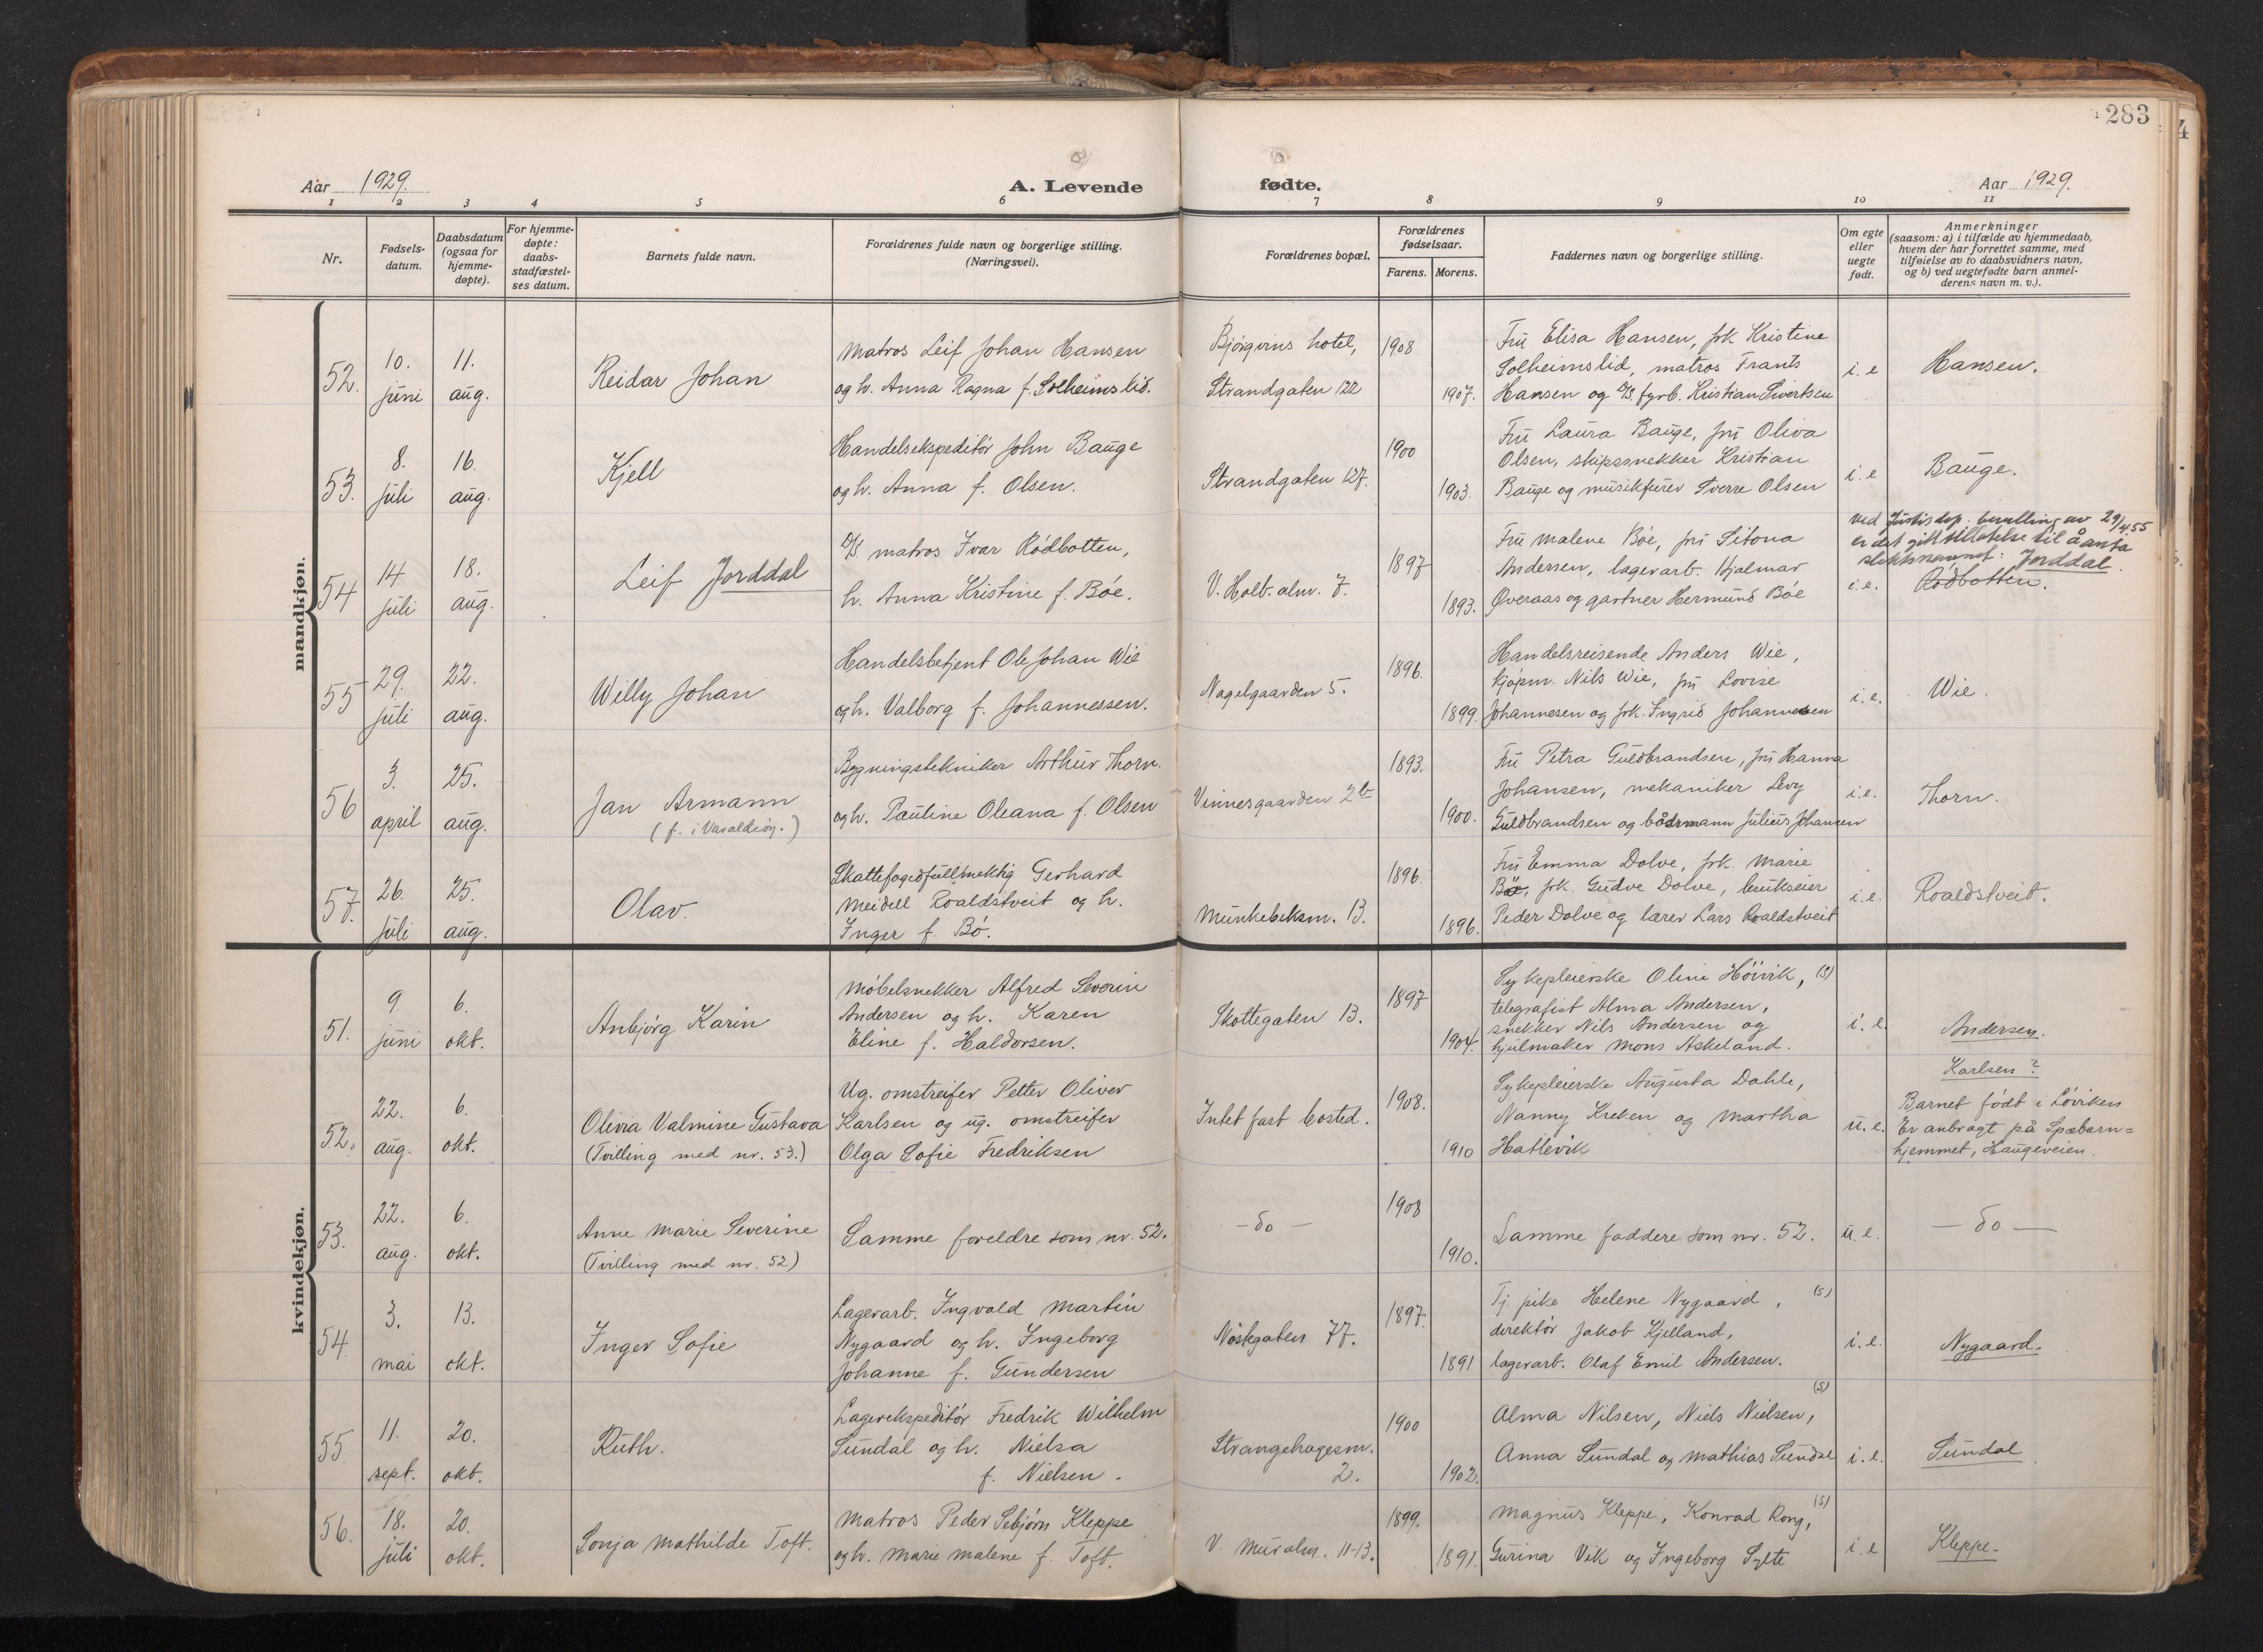 283
4
Aar 1929.
A. Levende
fødte.
Aar 1929.
1 2 3 4 5 6 7 8 9 10 11
Nr.
Fødsels-
datum.
Daabsdatum
(ogsaa for
hjemme-
døpte).
For hjemme-
døpte:
daabs-
stadfæstel-
ses datum.
Barnets fulde navn.
Forældrenes fulde navn og borgerlige stilling.
(Næringsvei).
Forældrenes bopæl.
Forældrenes
fødselsaar.
Farens. Morens.
Faddernes navn og borgerlige stilling.
Om egte
eller
uegte
født.
Anmerkninger
(saasom: a) i tilfælde av hjemmedaab,
hvem der har forrettet samme, med
tilføielse av to daabsvidners navn,
og b) ved uegtefødte barn anmel-
derens navn m. v.).
mandkjøn.
52.
10.
juni
11.
aug.
Reidar Johan
Matros Leif Johan Hansen
og h. Anna Ragna f. Solheimslid.
Bjørgvins hotel,
Strandgaten 122
1908
1907.
Fru Elisa Hansen, frk Kristine
Solheimslid, matros Frants
Hansen og D/S. fyrb. Kristian Sivertsen
i. e
Hansen.
53.
8.
juli
16.
aug.
Kjell
Handelsekspeditör John Bauge
og h. Anna f. Olsen.
Strandgaten 127.
1900
1903.
Fru Laura Bauge, fru Oliva
Olsen, skipssnekker Kristian
Bauge og musikfurer Sverre Olsen
i. e
Bauge.
54
14.
juli
18.
aug.
Leif Jorddal
D/S. matros Ivar Rödbotten,
h. Anna Kristine f. Böe.
V. Holb. alm. 7.
1897
1893.
Fru Malene Böe, fru Sitona
Andersen, lagerarb. Hjalmar
Øveraas og gartner Hermund Böe
i. e.
ved Justisdep. bevilling av 29/4 55
er det gitt tillatelse til å anta
slektsnavnet: Jorddal.
Rödbotten.
55
29.
juli
22.
aug.
Willy Johan
Handelsbetjent Ole Johan Wie
og h. Valborg f. Johannessen.
Nagelgaarden 5.
1896.
1899.
Handelsreisende Anders Wie,
kjöpm. Nils Wie, fru Lovise
Johannesen og frk. Ingrid Johannesen
i. e.
Wie.
56
3.
april
25.
aug.
Jan Armann
(f. i Varaldsöy.)
Bygningstekniker Arthur Thorn.
og h. Pauline Oleana f. Olsen
Vinnesgaarden 2b
1893.
1900.
Fru Petra Guldbrandsen, fru Hanna
Johansen, mekaniker Levy
Guldbrandsen og båtsmann Julius Johansen
i. e.
Thorn.
57.
26.
juli
25.
aug.
Olav.
Skattefogedfullmektig Gerhard
Meidell Roaldstveit og h.
Inger f. Bö.
Munkebeksm. 13.
1896.
1896.
Fru Emma Dolve, frk. Marie
Böe, frk. Gudve Dolve, brukseier
Peder Dolve og lærer Lars Roaldstveit
i. e.
Roaldstveit.
kvindekjøn.
51.
9.
juni
6.
okt.
Anbjörg Karin
Möbelsnekker Alfred Severin
Andersen og h. Karen
Eline f. Haldorsen.
Skottegaten 13.
1897
1904.
Sykepleierske Oline Höivik, (s)
telegrafist Alma Andersen,
snekker Nils Andersen og
hjulmaker Mons Askeland.
i. e.
Andersen.
52.
22.
aug.
6.
okt.
Olivia Valmine Gustava
(Tvilling med nr. 53.)
Ug. omstreifer Petter Oliver
Karlsen og ug. omstreifer
Olga Sofie Fredriksen
Intet fast bosted.
1908.
1910
Sykepleierske Augusta Dahle,
Nanny Kreken og Martha
Hatlevik
u. e.
Karlsen?
Barnet födt i Löviken
Er anbragt på Spæbarn=
hjemmet, Haugeveien.
53.
22.
aug.
6.
okt.
Anne Marie Severine
(Tvilling med nr. 52)
Samme foreldre som nr. 52.
- do -
1908
1910.
Samme faddere som nr. 52.
u. e.
- do -
54.
3.
mai
13.
okt.
Inger Sofie
Lagerarb. Ingvald Martin
Nygaard og h. Ingeborg
Johanne f. Gundersen
Nöstegaten 77.
1897.
1891
Tj. pike Helene Nygaard, (s)
direktör Jakob Kjelland,
lagerarb. Olaf Emil Andersen.
i. e.
Nygaard.
55
11.
sept.
20.
okt.
Ruth.
Lagerekspeditör Fredrik Wilhelm
Sundal og h. Nielsa
f. Nielsen.
Strangehagesm.
2.
1900
1902.
(s)
Alma Nilsen, Niels Nielsen,
Anna Sundal og Mathias Sundal
i. e.
Sundal
56.
18.
juli
20.
okt.
Sonja Mathilde Toft.
Matros Peder Sebjörn Kleppe
og h. Marie Malene f. Toft.
V. Muralm. 11-13.
1899.
1891.
Magnus Kleppe, Konrad Rong, (s)
Gurina Vik og Ingeborg Sylte
i. e
Kleppe.